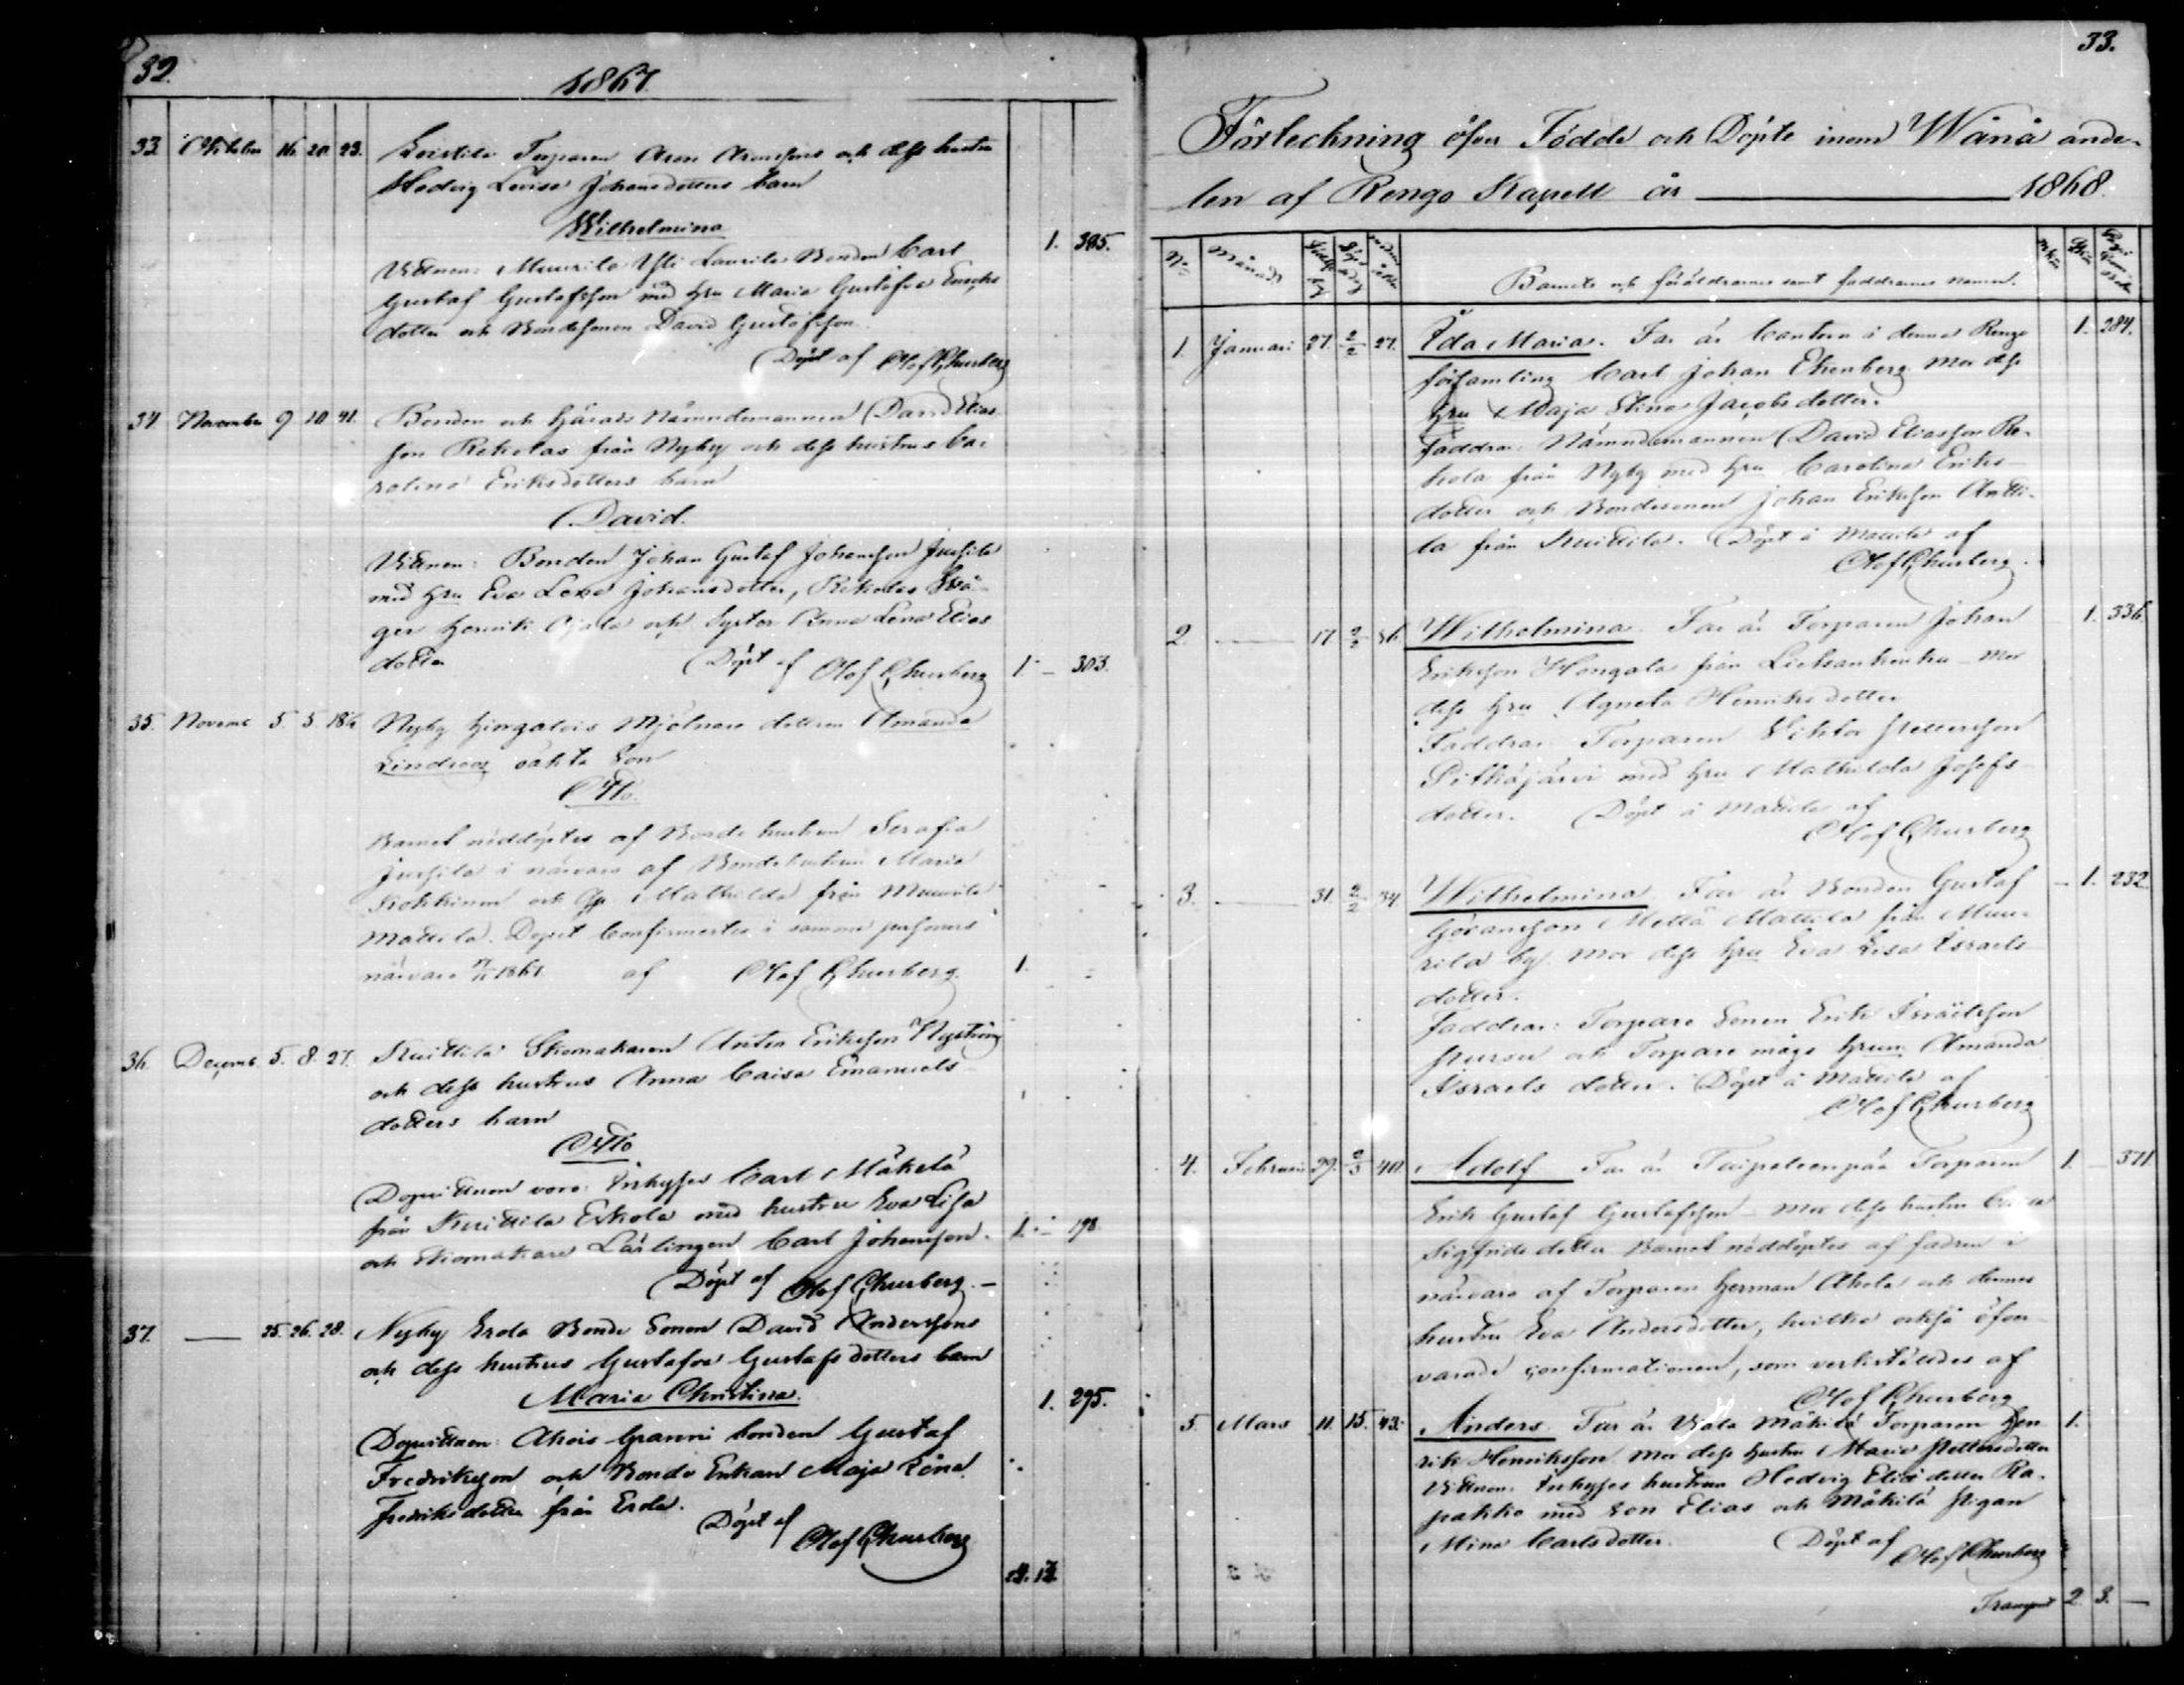 32.
1867.
33. Oktober 16. 20. 23. Torparen Aron Aronsons och dess hustru
Hedvig Lovisa Johansdotters barn
Wilhelmina
1. 385.
Vittnen: Muurila Yli Laurila Bonden Carl
Gustaf Gustafsson med hru Maria Gustafva Enochs
dotter och Bondesonen David Gustafsson.
Döpt af Olof Churberg
34. November 9. 10. 41. Bonden och Härads Nämndemannen David Elias
son Rekolas från Nyby och dess hustrus Ca-
rolina Eriksdotters barn
David.
Vittnen: Bonden Johan Gustaf Johansson Jussila
med hru Eva Lena Johansdotter, Rekolas Svå-
ger Henrik Ojala och Syster Anna Lena Elias
dotter Döpt af Olof Churberg 1 - 303.
35. Novemb 5. 5. Nyby Mjölnare dottern Amanda
oäkta Son
Otto.
Barnet nöddöptes af Bonde hustrun Serafia
Jussila i närvaro af Bondehustrun Maria
och Mathilda från Muurila
Mattila. Dopet Confirmertes i samma persones
närvaro 1867 af Olof Churberg. 1.
36. Decemb 5. 8. 27. Kuittila Skomakaren Anton Eriksson Nyström
och dess hustrus Anna Caisa Emanuels-
dotters barn
Otto
Dopvittnen voro: Inhyses Carl Mäkelä
från Kuittila Erkola med hustru Eva Lisa
och Skomakare Lärlingen Carl Johansson. 1. - 198.
Döpt af Olof Churberg. -
37. — 25. 26. 28. Nyby Erola Bonde Sonen David Anderssons
och dess hustrus Gustafva Gustafsdotters barn
Maria Christina.
1. 295.
Dopvittnen: Ahois Granni bonden Gustaf
Fredriksson och Bonde Enkan Maja Lena
Fredriksdotter från Erola.
Döpt af
Olof Churberg
33.
Förteckning öfver Födde och Döpte inom Wånå ande-
len af Rengo Kapell år — 1868.
No Månad
Barnets och föräldrarnes samt faddrarnes namn.
1. Januari 27. 2/2 27. Ida Maria. Far är Cantorn i denna Rengo 1. 284.
församling Carl Johan Ekenberg Mor dess
hru Maja Stina Jacobsdotter.
Faddrar: Nämndemannen David Eliasson Re-
kola från Nyby med hru Carolina Eriks-
dotter och Bondesonen Johan Eriksson Antti-
la från Kuittila. Döpt i Mattila af
Olof Churberg.
2. — 17. 2/2 36. Wilhelmina. Far är Torparen Johan 1. 336.
Eriksson Hongala från Mor
dess hru Agneta Henriksdotter
Faddrar: Torparen Viktor Pettersson
Pitkäjärvi med hru Mathilda Josefs-
dotter. Döpt i Mattila af
Olof Churberg
3. — 31. 2/2 34. Wilhelmina. Far är Bonden Gustaf - 1. 232.
Göransson Mattila från Muu-
rila by. Mor dess hru Eva Lisa Israels
dotter.
Faddrar: Torpare Sonen Erik Israelsson
och Torpare mågs hrun Amanda
Israels dotter. Döpt i Mattila af
Olof Churberg
4. Februari 29. 2/3 40. Adolf Far är Torparen 1. 371
Erik Gustaf Gustafsson - Mor dess hustru
Sigfrids dotter Barnet nöddöptes af fadren i
närvaro af Torparen Herman Ahola och dennes
hustru Eva Andersdotter, hvilka också öfver-
varade confirmationen, som verkställdes af
Olof Churberg
5. Mars 11. 15. 43. Anders. Far är Mäkilä Torparen Hen- 1.
rik Henriksson Mor dess hustru Maria Pettersdotter
Vittnen: Inhyses hustrun Hedvig Elias dotter Ra-
pakko med son Elias och Mäkilä Pigan
Mina Carlsdotter. Döpt af
Olof Churberg
Transport 2. 3. —